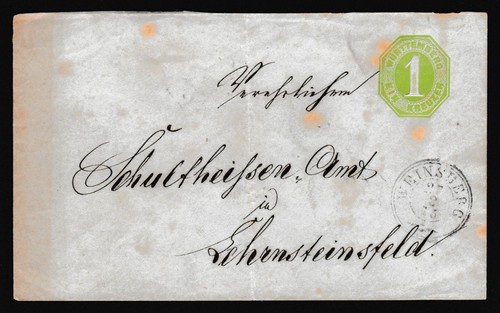 WÜRTTEMBERG
1
EIN KREUZER
Verehrlichem
Schultheissen-Amt
in
Lehrnsteinsfeld.
WEINSBERG